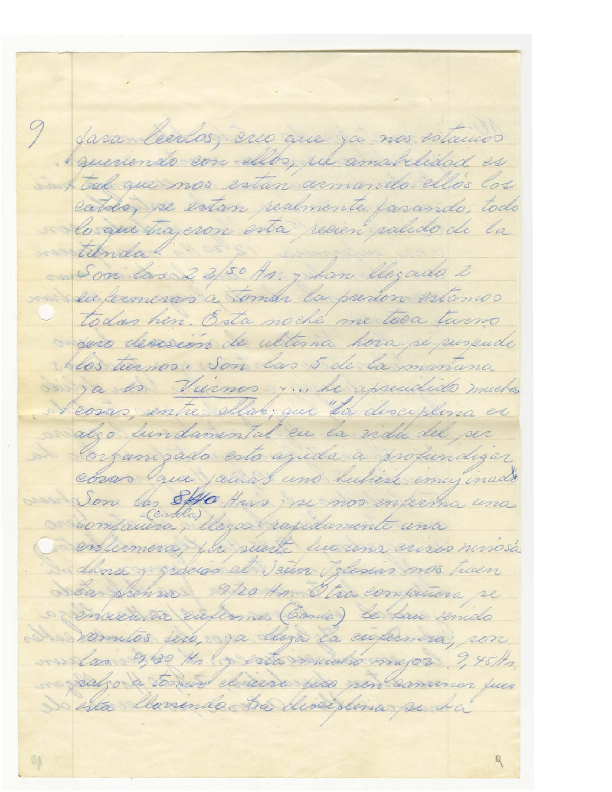 9 para leerlos, creo que ya nos estamos
queriendo con ellos, su amabilidad es
tal que nos estan armando ellos los
catres, se estan realmente pasando, todo
lo que trajeron esta recien salido de la
tienda.
Son las 22/30 Hs. y han llegado 2
enfermeras a tomar la presion estamos
todas bien. Esta noche me toca turno
pero decisión de ultima hora se suspende
los turnos. Son las 5 de la mañana
ya es Viernes y... he aprendido muchas
cosas, entre ellas; que "La disciplina es
algo fundamental" en la vida del ser
organizado esto ayuda a profundizar
cosas que jamas uno hubiese imaginado.
Son las 8/40 Hrs, se nos enferma una
compañera (Carola) llega rapidamente una
enfermera, por suerte fue una crisis nerviosa
ahora y gracias al Señor Iglesias nos traen
la prensa. 9/20 Hs. Otra compañera se
encuentra enferma le han venido
vomitos pero, ya llega la enfermera, son
las 9,30 Hs. y esta mucho mejor. 9,45 Hs.
salgo a tomar el aire pero sin caminar pues
esta lloviendo. La disciplina se ha
9